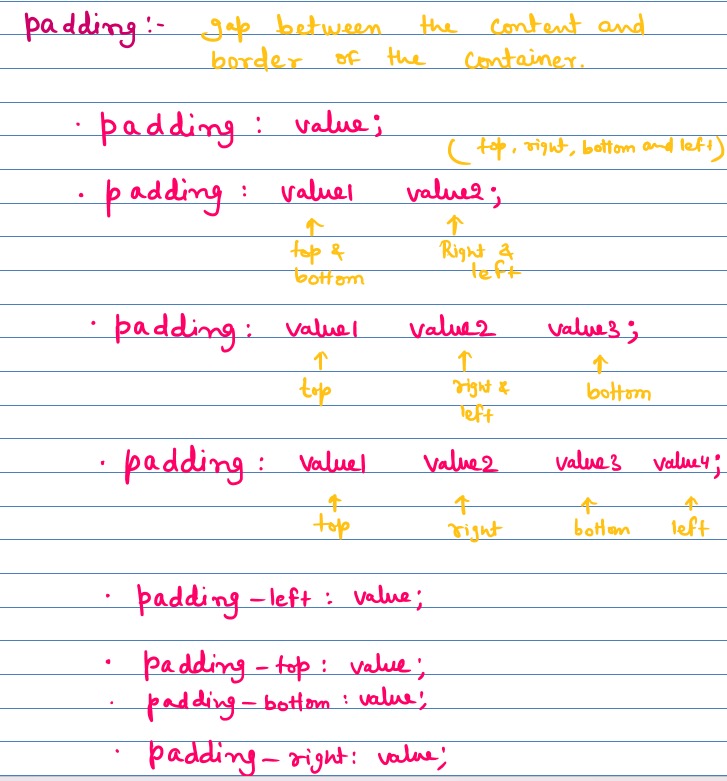 padding :- gap between the content and
border of the container.
• padding : value;
( top, right, bottom and left)
• padding : value1 value2;
↑ ↑
top & Right &
bottom left
• padding: value1 value2 value3;
↑ ↑ ↑
top right & bottom
left
• padding : value1 value2 value3 value4;
↑ ↑ ↑ ↑
top right bottom left
• padding-left : value;
• padding-top : value;
• padding-bottom : value;
• padding-right: value;